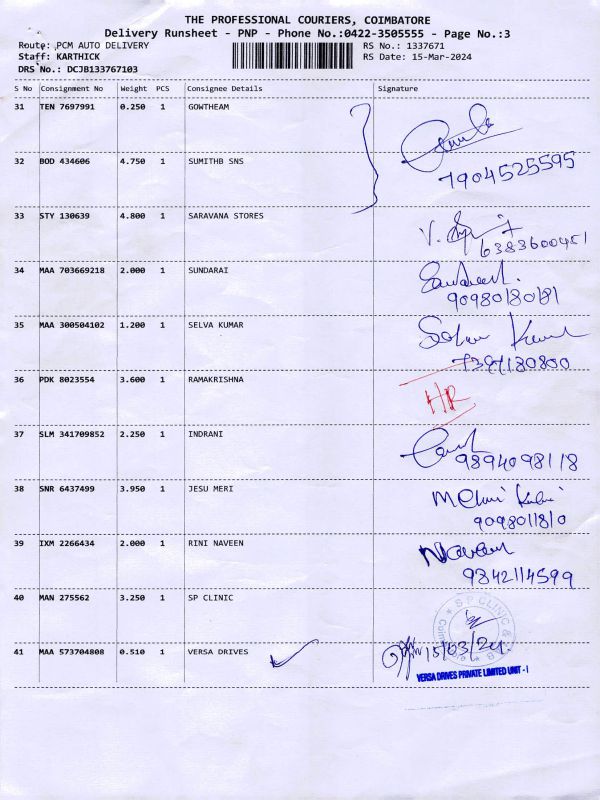 THE PROFESSIONAL COURIERS, COIMBATORE
Delivery Runsheet - PNP - Phone No.:0422-3505555 - Page No.:3
Route: PCM AUTO DELIVERY RS No.: 1337671
Staff: KARTHICK RS Date: 15-Mar-2024
DRS No.: DCJB133767103
S No Consignment No Weight PCS Consignee Details Signature
31 TEN 7697991 0.250 1 GOWTHEAM
32 BOD 434606 4.750 1 SUMITHB SNS
7904525595
33 STY 130639 4.800 1 SARAVANA STORES
6383600451
34 MAA 703669218 2.000 1 SUNDARAI
9098018081
35 MAA 300504102 1.200 1 SELVA KUMAR
36 PDK 8023554 3.600 1 RAMAKRISHNA
HR
37 SLM 341709852 2.250 1 INDRANI
9894098118
38 SNR 6437499 3.950 1 JESU MERI
9098011810
39 IXM 2266434 2.000 1 RINI NAVEEN
Naveen
9842114599
40 MAN 275562 3.250 1 SP CLINIC
SP CLINIC &
41 MAA 573704808 0.510 1 VERSA DRIVES
15/03/24
VERSA DRIVES PRIVATE LIMITED UNIT - I